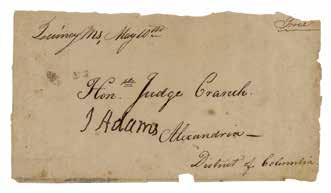 Quincy Ms, May 10th Free
Honble Judge Cranch.
J Adams
Alexandria —
District of Columbia